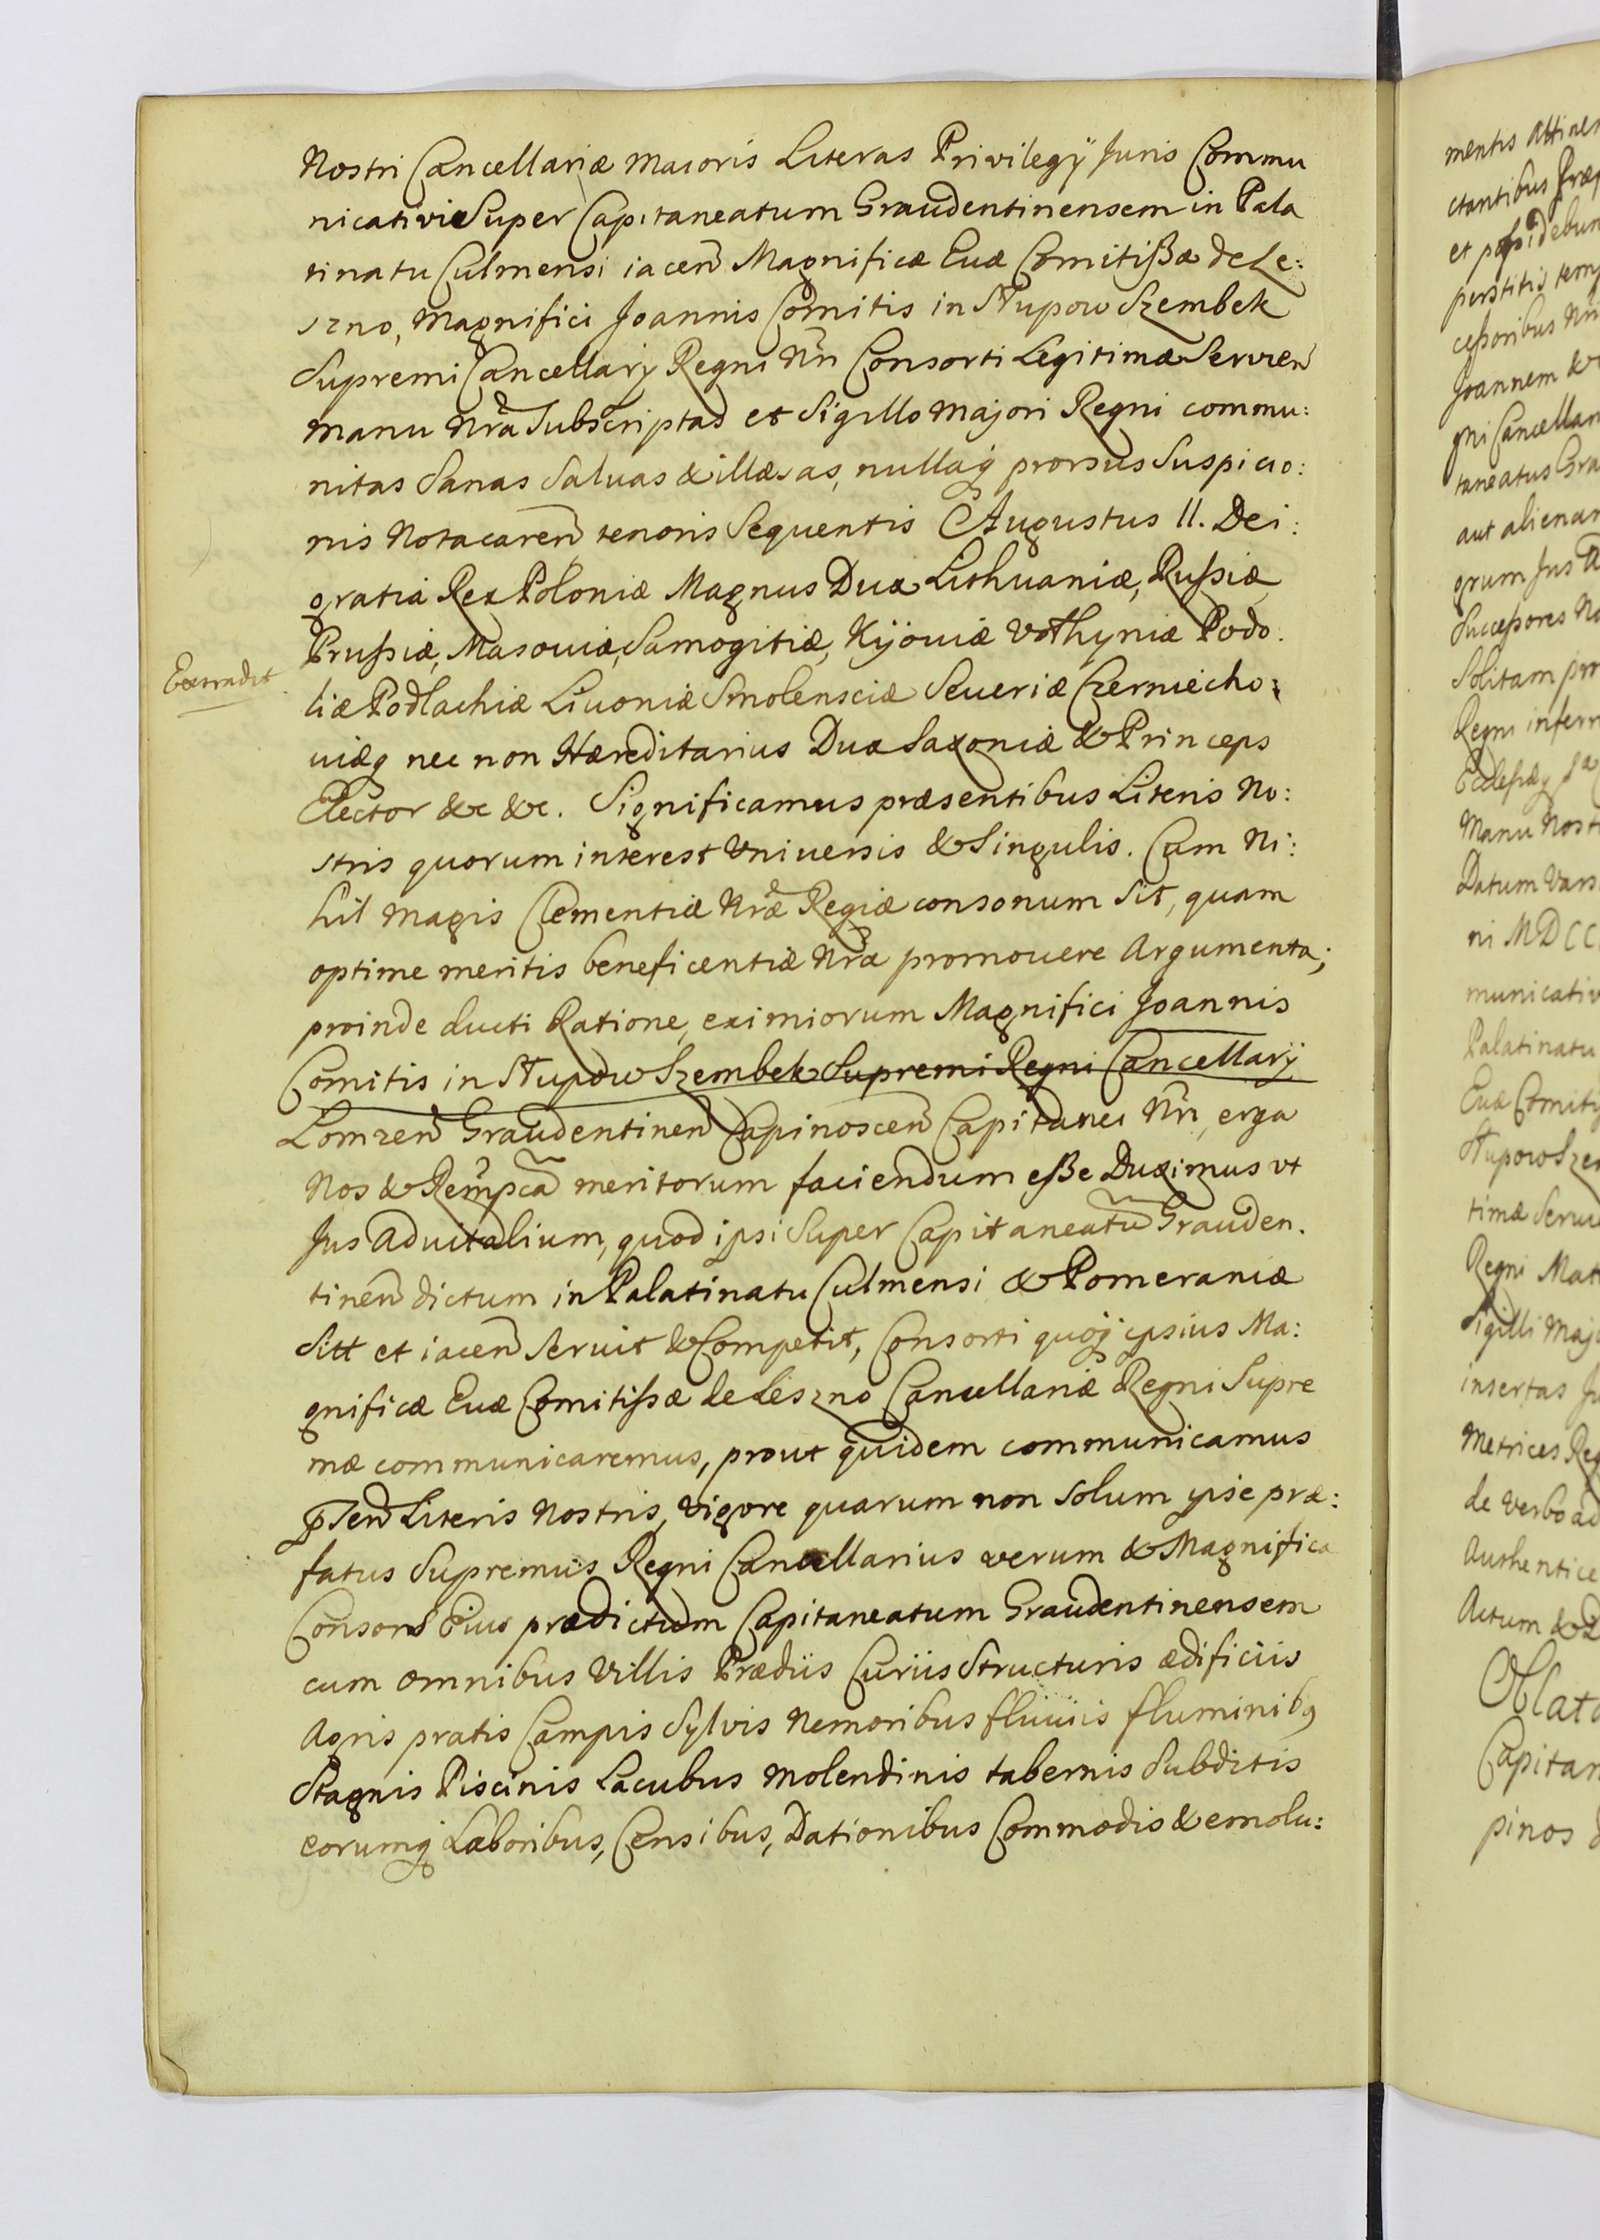 Nostri Cancellariæ Maioris Literas Privilegÿ Juris Commu
nicativi Super Capitaneatum Graudentinensem in Pala
tinatu Culmensi iacen̄ Magnificæ Evæ Comitißæ de Le:
szno, Magnifici Joannis Comitis in Słupow Szembek
Supremi Cancellarÿ Regni Nr̄i Consorti Legitimæ Servien̄
manu Nr̄a Subscriptas et Sigillo Majori Regni commu:
nitas Sanas Salvas & illæsas, nullaq prorsus Suspicio:
nis Nota caren̄ tenoris Sequentis Augustus II. Dei:
gratia Rex Poloniæ Magnus Dux Lithuaniæ, Rußiæ
Prußiæ, Masouiæ, Samogitiæ, Kijouiæ Vołhyniæ Podo:
Extradit
liæ Podlachiæ Liuoniæ Smolensciæ Seueriæ Czerniecho:
uiæq nec non Hæreditarius Dux Saxoniæ & Princeps
Elector &c &c. Significamus præsentibus Literis No:
stris quorum interest Vniuersis & Singulis. Cum Ni:
hil magis Clementiæ Nr̄æ Regiæ consonum Sit, quam
optime meritis beneficentiæ Nr̄æ promouere Argumenta;
proinde ducti Ratione, eximiorum Magnifici Joannis
Comitis in Słupow Szembek Supremi Regni Cancellarÿ
Lomzen̄ Graudentinen̄ Capinoscen̄ Capitanei Nr̄i, erga
Nos & Remp̄cā meritorum faciendum eße Duximus vt
Jus Aduitalium, quod ipsi Super Capitaneatū Grauden.
tinen̄ dictum in Palatinatu Culmensi & Pomeraniæ
Sitt et iacen̄ Seruit & Competit, Consorti quoq ipsius Ma:
gnificæ Evæ Comitißæ de Leszno Cancellariæ Regni Supre
mæ communicaremus, prout quidem communicamus
p̄sen̄ Literis Nostris, Vigore quarum non Solum ipse præ:
fatus Supremus Regni Cancellarius verum & Magnifica
Consors Eius prædictum Capitaneatum Graudentinensem
cum omnibus Villis Prædiis Curiis Structuris ædificiis
Agris pratis Campis Sylvis Nemoribus fluuiis fluminibq
Stagnis Piscinis Lacubus Molendinis tabernis Subditis
eorumq Laboribus, Censibus, Dationibus Commodis & emolu:
mentis Attinen
ctantibus Præ
et poßidebun
perstitis temp
ceßoribus Nri
Joannem &
gni Cancellar
taneatus Gra
aut alienar
Succeßores No
Solitam pro
Manu Nost
Datum Vars
ni MDCC
municativ
Palatinatu
Evæ Comity
Słupow Szem
timæ Serui
Regni Mat
Sigilli Majo
insertas Ju
Metrices Reg
de Verbo ad
Authentice
Actum & D
Oblata
Capitan
pinos